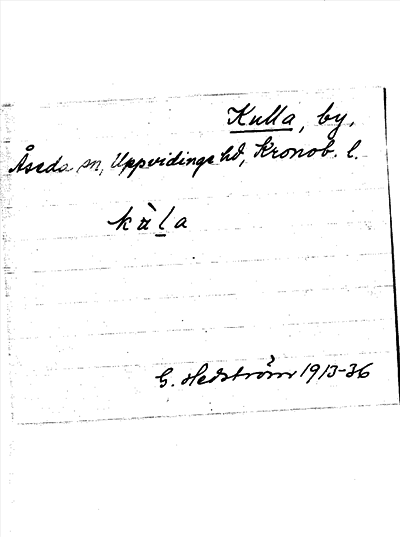 Kulla, by,
Åseda sn, Uppvidinge hd, Kronob. l.
G. Hedström 1913-36